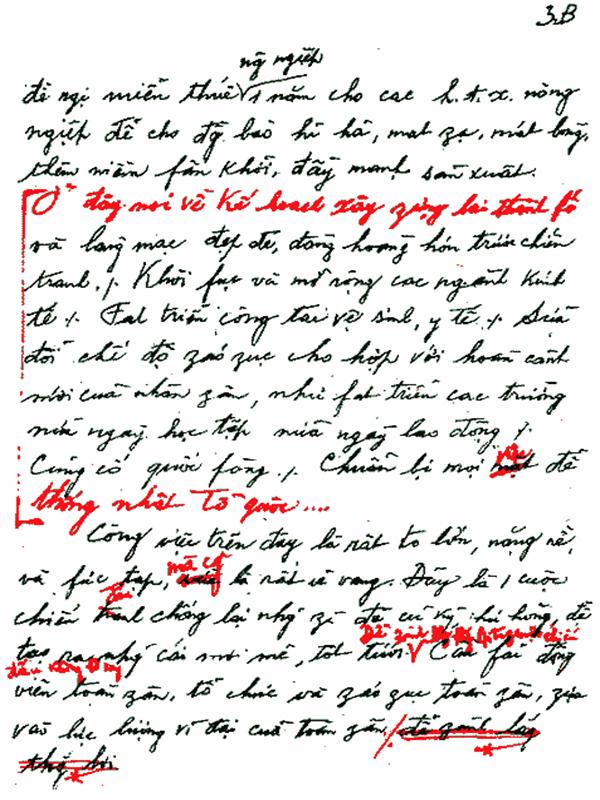 3.B
ng ngiệp
đề ngị miễn thuế 1 năm cho các h.t.x. nông
ngiệp để cho đ.b bào hỉ hả, mát zạ, mát lòng,
thêm niềm fấn khởi, đẩy mạnh sản xuất.
Ở đây nói về kế hoạch xây zựng lại thành fố
và làng mạc đẹp đẽ, đàng hoàng hơn trước chiến
tranh. /. Khôi fục và mở rộng các ngành kinh
tế /. Fát triển công tác vệ sinh, y tế /. Sửa
đổi chế độ záo zục cho hợp với hoàn cảnh
mới của nhân zân, như fát triển các trường
nửa ngày học tập nửa ngày lao động /.
việc
Củng cố quốc fòng /. Chuẩn bị mọi mặt để
thống nhất Tổ quốc....
Công việc trên đây là rất to lớn, nặng nề,
mà cũ
và fức tạp, là rất vẻ vang. Đây là 1 cuộc
đấu
chiến tranh chống lại nhữ zì đã cũ kỹ, hư hỏng, để
tạo ra nhữ cái mới mẻ, tốt tươi. Cần fải động
viên toàn zân, tổ chức và záo zục toàn zân, zựa
vào lực lượng vĩ đại của toàn zân, để zành lấy
thắ lợi